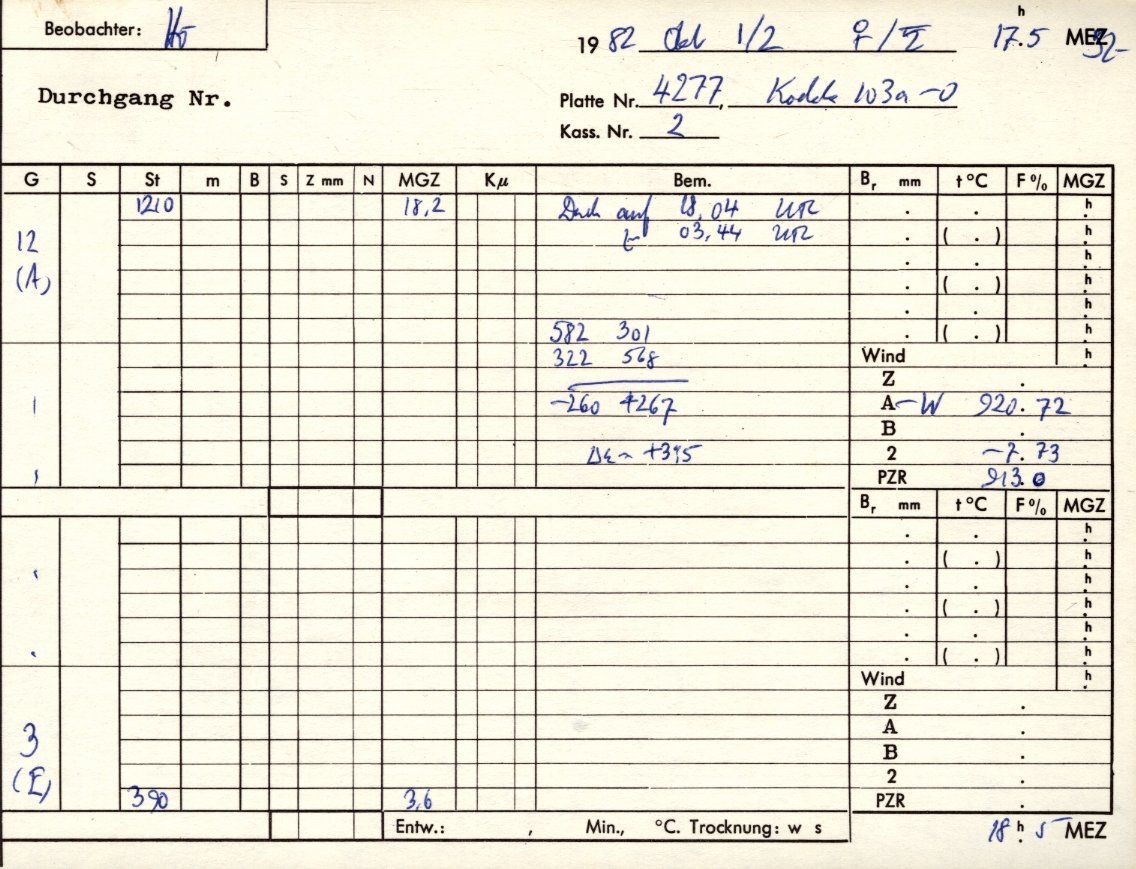 Beobachter:
19 82 Okt 1/2 ♀/♄ 17.5 h MEZ
Durchgang Nr.
Platte Nr. 4277, Kodak 103a-O
Kass. Nr. 2
G S St m B S Z mm N MGZ Kμ Bem. Br mm t °C F% MGZ
1210 18,2 Dach auf 18,04 h
12 03,44 ( . ) h
h
(A) ( . ) h
h
582 301 ( . ) h
322 568 Wind h
Z .
1 -260 +267 A-W 920.72
B .
Δε ~ +3,5 2 -7.73
PZR 913.0
Br mm t °C F% MGZ
h
( . ) h
h
( . ) h
h
( . ) h
Wind h
Z .
3 A .
B .
(E) 2 .
390 3,6 PZR .
Entw.: , Min., °C. Trocknung: w s
18 h 5 MEZ